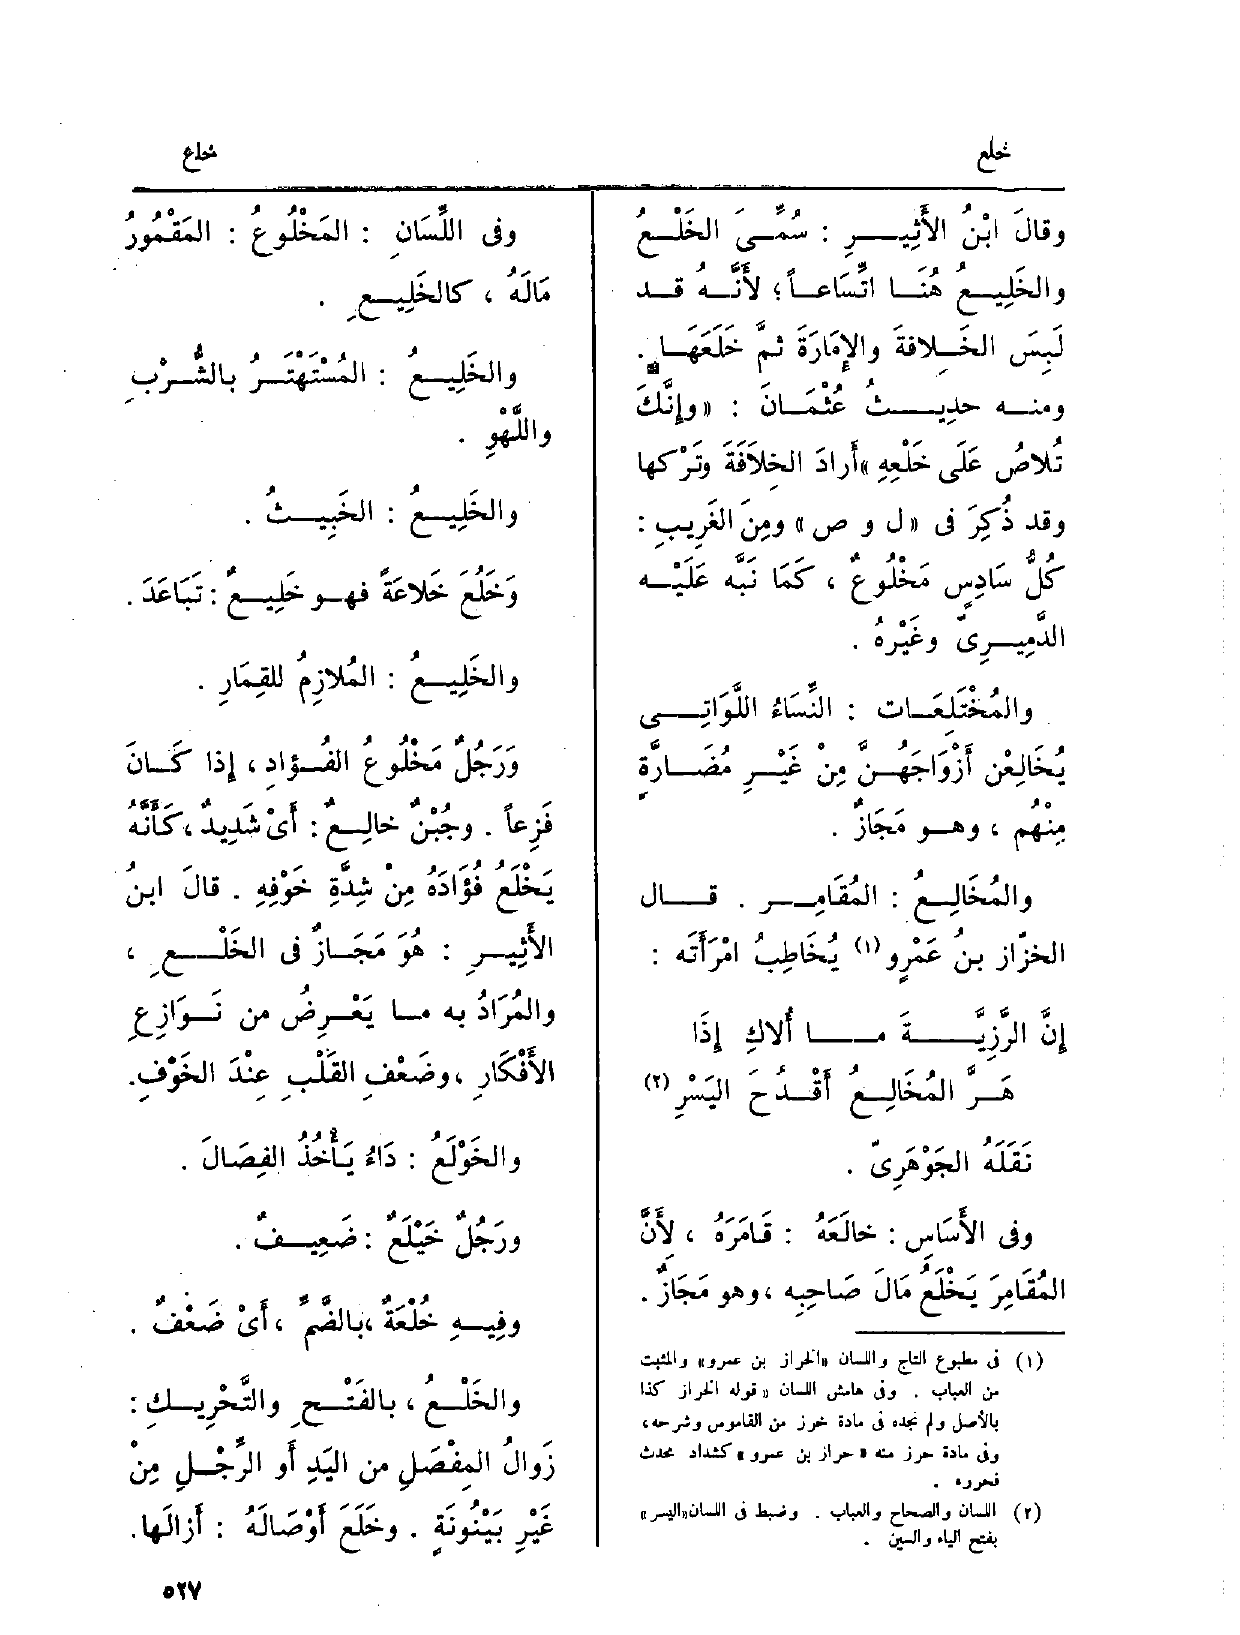 خلع
خلع
وقالَ ابْنُ الأَثِيـــرِ : سُمِّـىَ الخَلْـــعُ
والخَلِيــعُ هُنَــا اتِّسَاعــاً ؛ لأَنَّــهُ قــد
لَبِسَ الخَــلافةَ والإِمَارَةَ ثمَّ خَلَعَهَــا .
ومنــه حديـــثُ عُثْمَــانَ : «وإِنَّكَ
تُلاصُ عَلَى خَلْعِهِ» أَرادَ الخِلاَفَةَ وتَرْكها
وقد ذُكِرَ فى «ل و ص» ومِنَ الغَرِيبِ :
كُلُّ سَادِسٍ مَخْلُوعٌ ، كَمَا نَبَّه عَلَيْــه
الدَّمِيــرِىّ وغَيْرُهُ .
والمُخْتَلِعَــات : النِّسَاءُ اللَّوَاتِــى
يُخَالِعْن أَزْوَاجَهُــنَّ مِنْ غَيْــرِ مُضَــارَّةٍ
مِنْهُم ، وهــو مَجَازٌ .
والمُخَالِــعُ : المُقَامِــر . قــــال
الخرّاز بنُ عَمْرٍو (١) يُخَاطِبُ امْرَأَتَه :
إِنَّ الرَّزِيَّـــــةَ مــــا أُلاكِ إِذَا
هَــرَّ المُخَالِــعُ أَقْــدُحَ اليَسْرِ (٢)
نَقَلَهُ الجَوْهَرِىّ .
وفى الأَسَاسِ : خالَعَهُ : قَامَرَهُ ، لأَنَّ
المُقَامِرَ يَخْلَعُ مَالَ صَاحِبِه ، وهو مَجَازٌ .
(١) فى مطبوع التاج واللسان «الخراز بن عمرو» والمثبت
من العباب . وفى هامش اللسان «قوله الخراز كذا
بالأصل ولم نجده فى مادة خرز من القاموس وشرحه،
وفى مادة حرز منه «حراز بن عمرو» كشداد محدث
فحرره .
(٢) اللسان والصحاح والعباب . وضبط فى اللسان «اليسر»
بفتح الياء والسين .
وفى اللِّسَانِ : المَخْلُوعُ : المَقْمُورُ
مَالَهُ ، كالخَلِيــعِ .
والخَلِيــعُ : المُسْتَهْتَــرُ بالشُّــرْبِ
واللَّهْوِ .
والخَلِيــعُ : الخَبِيــثُ .
وَخَلُعَ خَلاعَةً فهــو خَلِيــعٌ : تَبَاعَدَ .
والخَلِيــعُ : المُلاَزِمُ للقِمَارِ .
وَرَجُلٌ مَخْلُوعُ الفُــؤادِ ، إِذا كَــانَ
فَزِعاً . وجُبْنٌ خالِــعٌ : أَىْ شَدِيدٌ ، كَأَنَّهُ
يَخْلَعُ فُؤَادَهُ مِنْ شِدَّةِ خَوْفِهِ . قالَ ابنُ
الأَثِيــرِ : هُوَ مَجَــازٌ فى الخَلْــــعِ ،
والمُرَادُ به مــا يَعْــرِضُ من نَــوَازِعِ
الأَفْكَارِ ، وضَعْفِ القَلْبِ عِنْدَ الخَوْفِ.
والخَوْلَعُ : دَاءٌ يَــأْخُذُ الفِصَالَ .
ورَجُلٌ خَيْلَعٌ : ضَعِيــفٌ .
وفِيــهِ خُلْعَةٌ ، بالضَّمّ ، أَىْ ضَعْفٌ .
والخَلْــعُ ، بالفَتْــحِ والتَّحْرِيــكِ :
زَوالُ المِفْصَلِ من اليَدِ أو الرِّجْــلِ مِنْ
غَيْرِ بَيْنُونَةٍ . وخَلَعَ أَوْصَالَهُ : أَزالَها.
٥٢٧